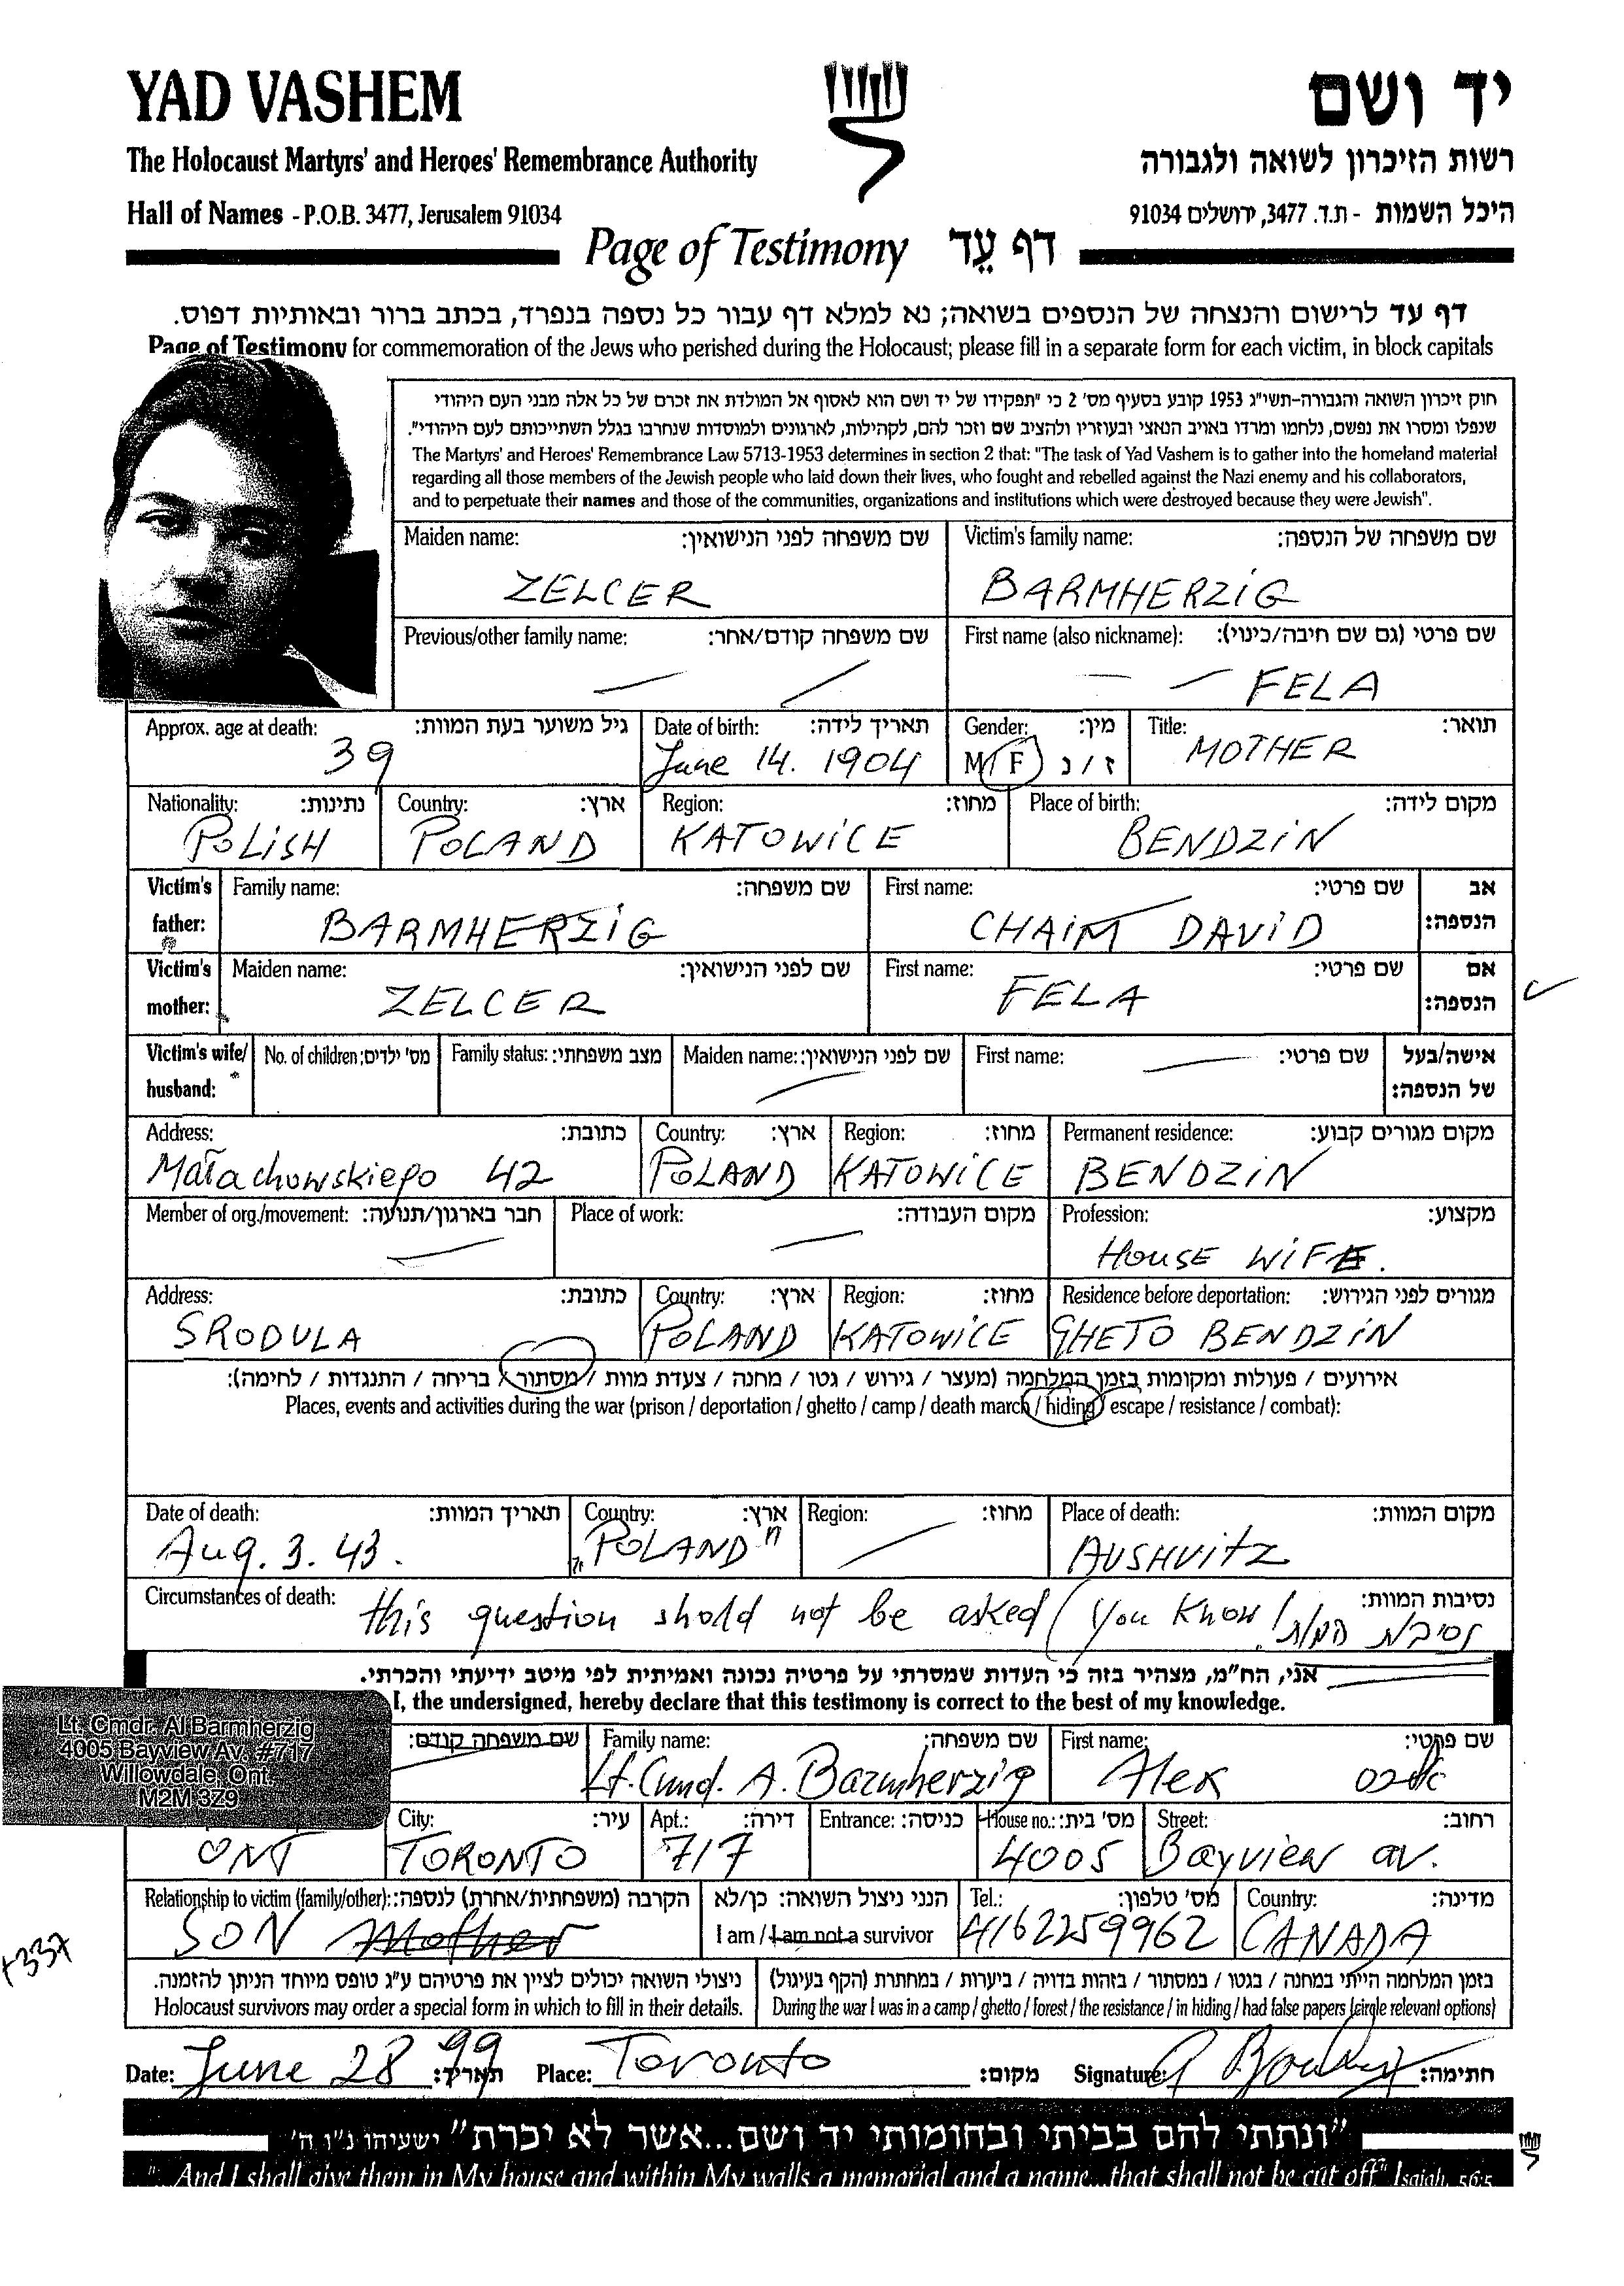 YAD VASHEM
יד ושם
The Holocaust Martyrs' and Heroes' Remembrance Authority
רשות הזיכרון לשואה ולגבורה
Hall of Names - P.O.B. 3477, Jerusalem 91034
היכל השמות - ת.ד. 3477, ירושלים 91034
Page of Testimony דף עֵד
דף עד לרישום והנצחה של הנספים בשואה; נא למלא דף עבור כל נספה בנפרד, בכתב ברור ובאותיות דפוס.
Page of Testimony for commemoration of the Jews who perished during the Holocaust; please fill in a separate form for each victim, in block capitals
חוק זיכרון השואה והגבורה-תשי"ג 1953 קובע בסעיף מס' 2 כי "תפקידו של יד ושם הוא לאסוף אל המולדת את זכרם של כל אלה מבני העם היהודי
שנפלו ומסרו את נפשם, נלחמו ומרדו באויב הנאצי ובעוזריו ולהציב שם וזכר להם, לקהילות, לארגונים ולמוסדות שנחרבו בגלל השתייכותם לעם היהודי".
The Martyrs' and Heroes' Remembrance Law 5713-1953 determines in section 2 that: "The task of Yad Vashem is to gather into the homeland material
regarding all those members of the Jewish people who laid down their lives, who fought and rebelled against the Nazi enemy and his collaborators,
and to perpetuate their names and those of the communities, organizations and institutions which were destroyed because they were Jewish".
Maiden name: שם משפחה לפני הנישואין: Victim's family name: שם משפחה של הנספה:
ZELCER BARMHERZiG
Previous/other family name: שם משפחה קודם/אחר: First name (also nickname): שם פרטי (גם שם חיבה/כינוי):
FELA
Approx. age at death: גיל משוער בעת המוות: Date of birth: תאריך לידה: Gender: מין: Title: תואר:
39 June 14. 1904 M/F ז/נ MOTHER
Nationality: נתינות: Country: ארץ: Region: מחוז: Place of birth: מקום לידה:
POLiSH POLAND KATOWiCE BENDZiN
Victim's father: Family name: שם משפחה: First name: שם פרטי: אב הנספה:
BARMHERZiG CHAiM DAViD
Victim's mother: Maiden name: שם לפני הנישואין: First name: שם פרטי: אם הנספה:
ZELCER FELA
Victim's wife/husband: No. of children: מס' ילדים: Family status: מצב משפחתי: Maiden name: שם לפני הנישואין: First name: שם פרטי: אישה/בעל של הנספה:
Address: כתובת: Country: ארץ: Region: מחוז: Permanent residence: מקום מגורים קבוע:
Małachowskiego 42 POLAND KATOWiCE BENDZiN
Member of org./movement: חבר בארגון/תנועה: Place of work: מקום העבודה: Profession: מקצוע:
HOUSE WiFE.
Address: כתובת: Country: ארץ: Region: מחוז: Residence before deportation: מגורים לפני הגירוש:
SRODULA POLAND KATOWiCE GHETO BENDZiN
אירועים / פעולות ומקומות בזמן המלחמה (מעצר / גירוש / גטו / מחנה / צעדת מוות / מסתור / בריחה / התנגדות / לחימה):
Places, events and activities during the war (prison / deportation / ghetto / camp / death march / hiding / escape / resistance / combat):
Date of death: תאריך המוות: Country: ארץ: Region: מחוז: Place of death: מקום המוות:
Aug. 3. 43. "POLAND" AUSHVitZ
Circumstances of death: נסיבות המוות:
this question shold not be asked (you know!
אני, הח"מ, מצהיר בזה כי העדות שמסרתי על פרטיה נכונה ואמיתית לפי מיטב ידיעתי והכרתי.
I, the undersigned, hereby declare that this testimony is correct to the best of my knowledge.
Lt. Cmdr. Al Barmherzig
4005 Bayview Av. #717
Willowdale, Ont.
M2M 3Z9
שם משפחה קודם: Family name: שם משפחה: First name: שם פרטי:
Lt. Cmd. A. Barmherzig Alex
City: עיר: Apt.: דירה: Entrance: כניסה: House no.: מס' בית: Street: רחוב:
ONT TORONTO 717 4005 Bayview av.
Relationship to victim (family/other): הקרבה (משפחתית/אחרת) לנספה: הנני ניצול השואה: כן/לא Tel.: מס' טלפון: Country: מדינה:
SON Mother I am / I am not a survivor 4162259962 CANADA
+337
ניצולי השואה יכולים לציין את פרטיהם ע"ג טופס מיוחד הניתן להזמנה. בזמן המלחמה הייתי במחנה / בגטו / במסתור / בזהות בדויה / ביערות / במחתרת (הקף בעיגול)
Holocaust survivors may order a special form in which to fill in their details. During the war I was in a camp / ghetto / forest / the resistance / in hiding / had false papers (circle relevant options)
Date: June 28 99 תאריך: Place: Toronto מקום: Signature: חתימה:
"ונתתי להם בביתי ובחומותי יד ושם...אשר לא יכרת" ישעיהו נ"ו ה'
"...And I shall give them in My house and within My walls a memorial and a name...that shall not be cut off" Isaiah, 56:5